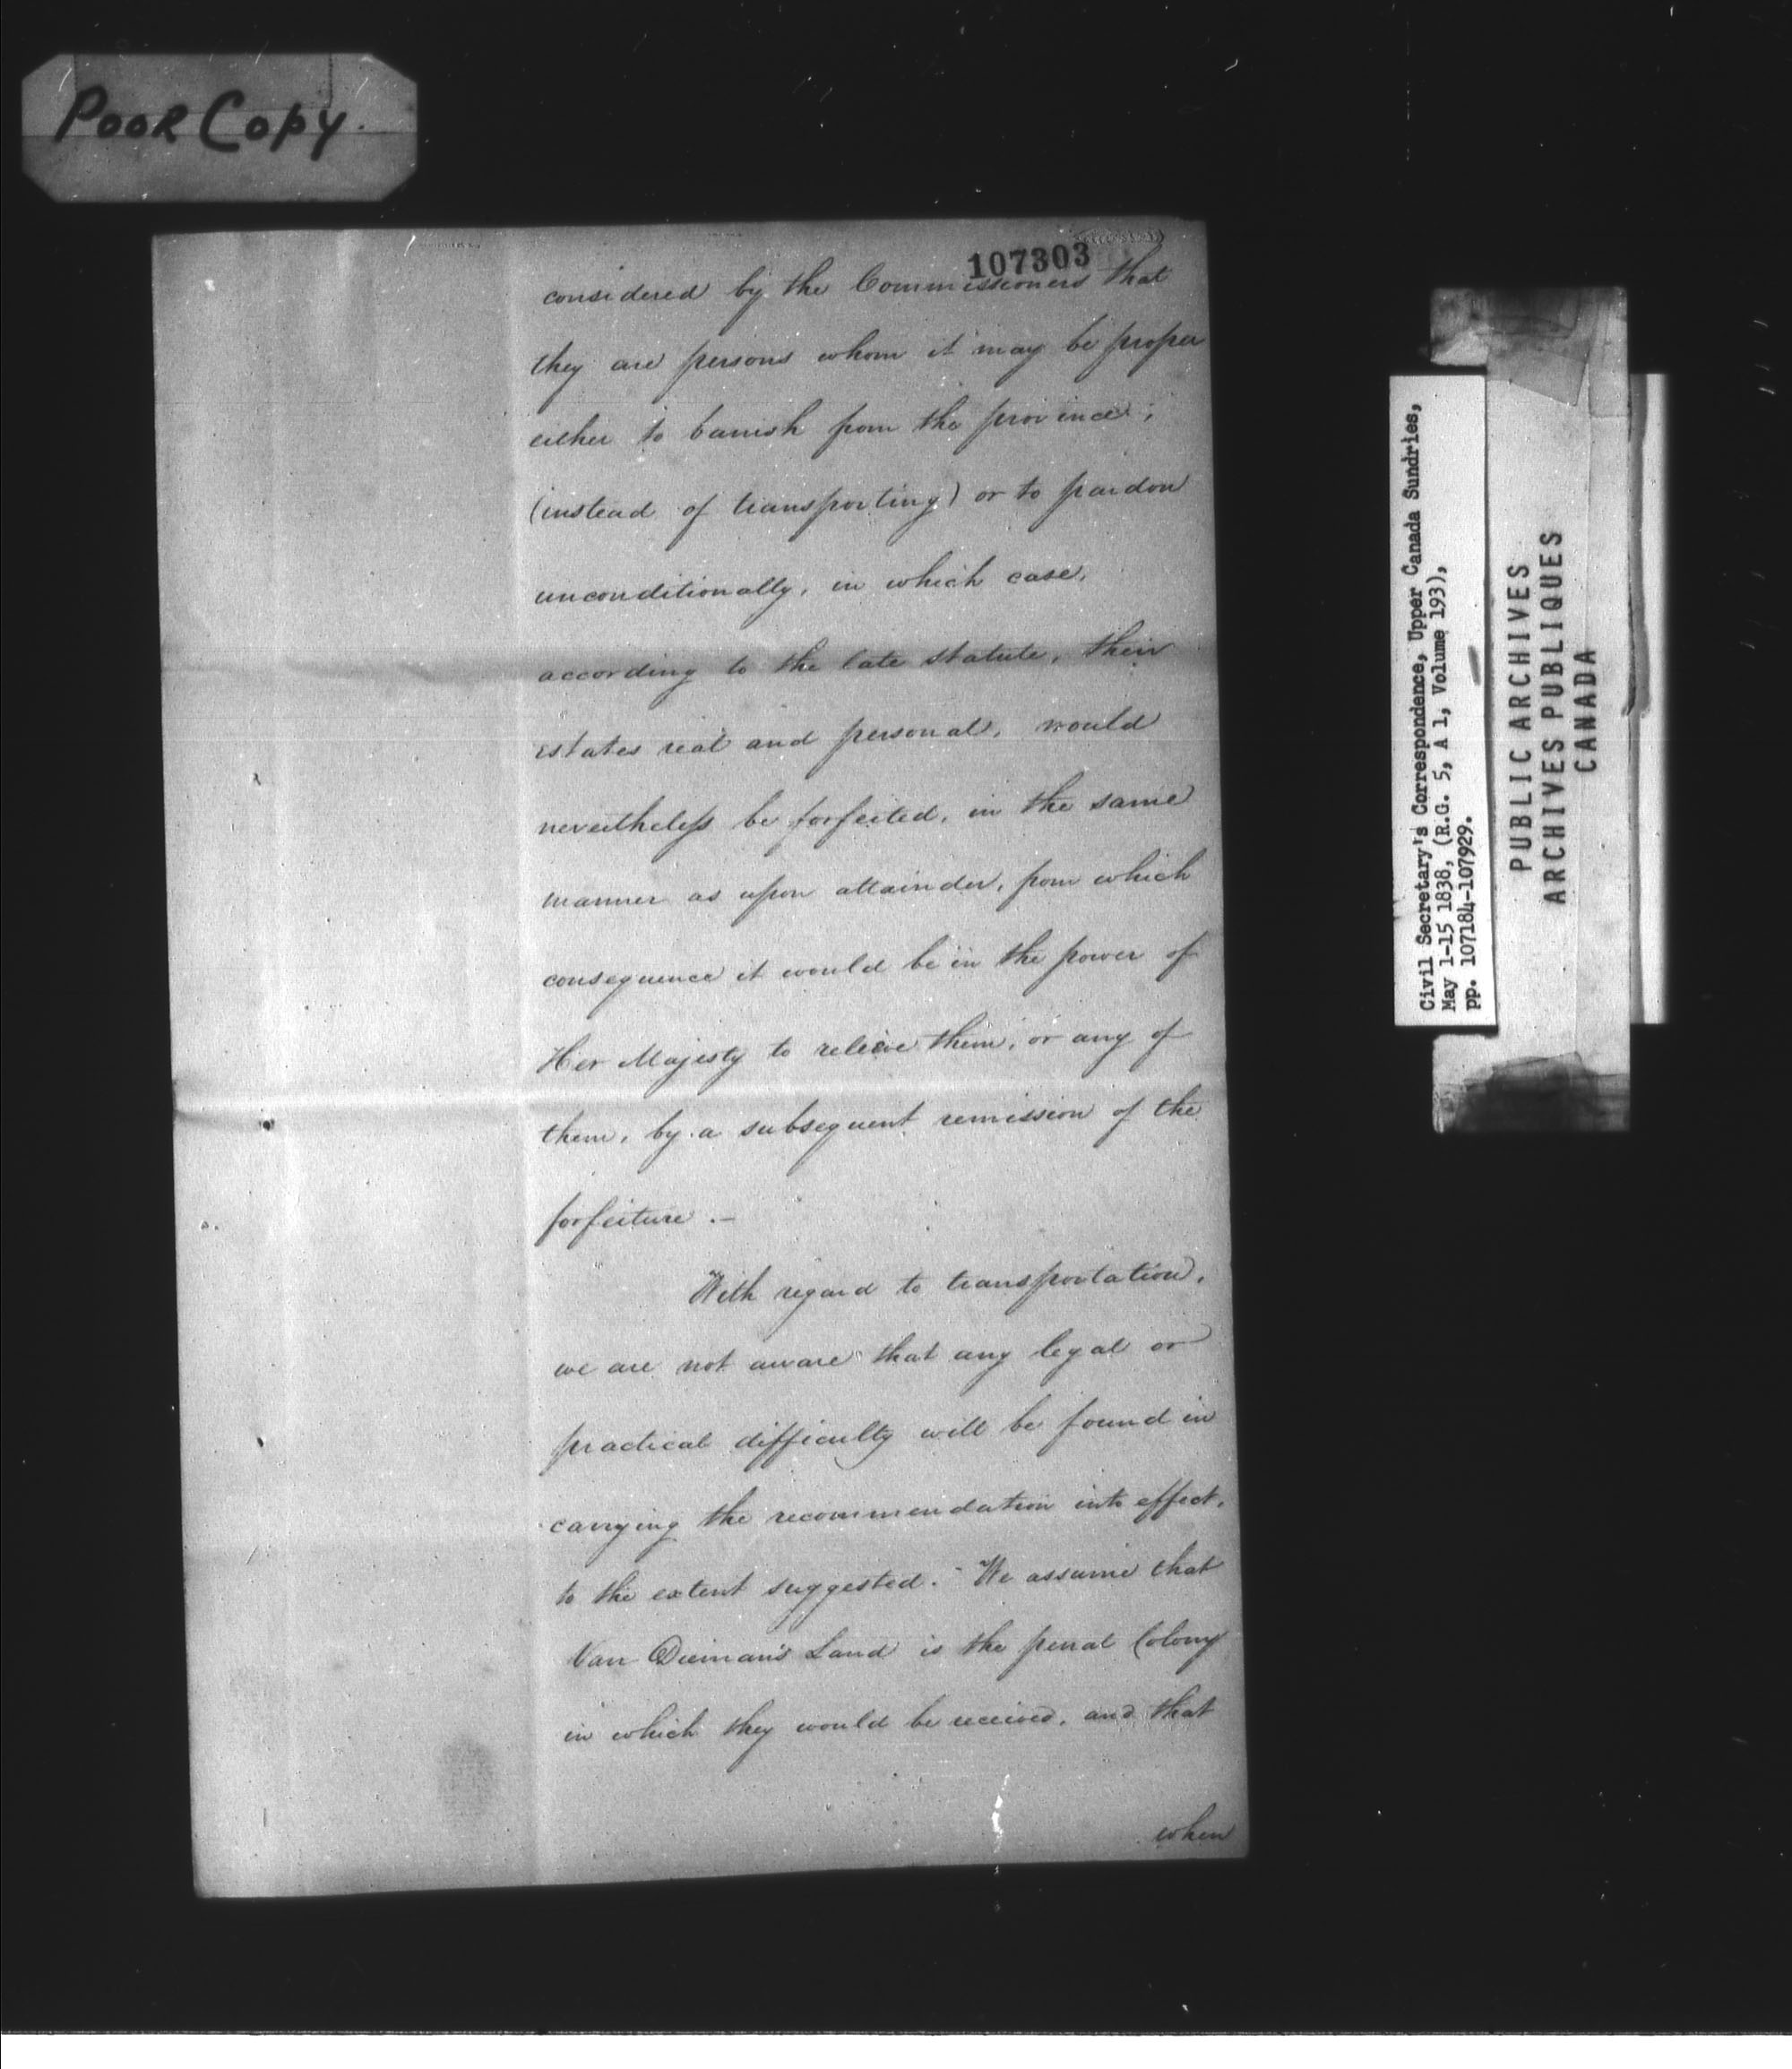 Poor Copy.
107303
considered by the Commissioners that
they are persons whom it may be proper
either to banish from the province;
(instead of transporting) or to pardon
unconditionally, in which case,
according to the late statute, their
estates real and personal, would
nevertheless be forfeited, in the same
manner as upon attainder, from which
consequence it would be in the power of
Her Majesty to relieve them, or any of
them, by a subsequent remission of the
forfeiture.—
With regard to transportation,
we are not aware that any legal or
practical difficulty will be found in
carrying the recommendation into effect,
to the extent suggested. We assume that
Van Dieman's Land is the penal Colony
in which they would be received, and that
when
Civil Secretary's Correspondence, Upper Canada Sundries,
May 1-15 1838, (R.G. 5, A 1, Volume 193),
pp. 107184-107929.
PUBLIC ARCHIVES
ARCHIVES PUBLIQUES
CANADA